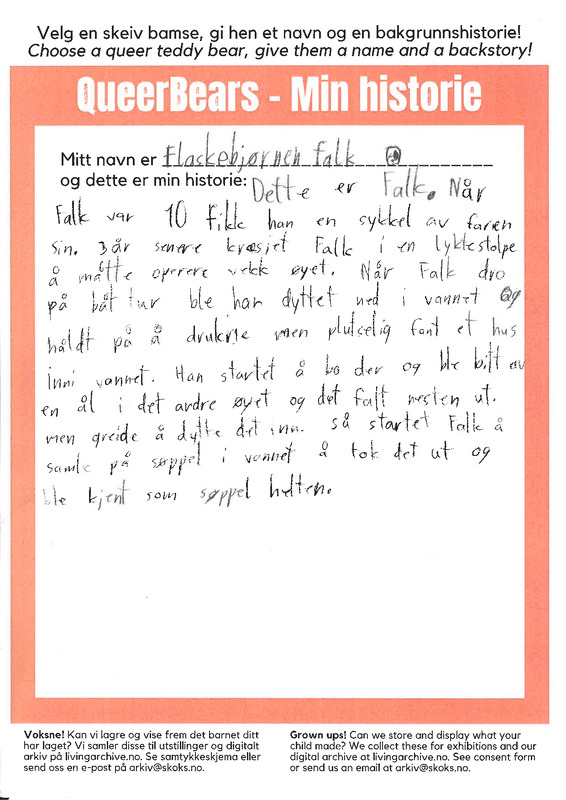 Velg en skeiv bamse, gi hen et navn og en bakgrunnshistorie!
Choose a queer teddy bear, give them a name and a backstory!
QueerBears - Min historie
Mitt navn er Flaskebjørnen falk
og dette er min historie: Dette er Falk. Når
Falk var 10 fikk han en sykkel av faren
sin. 3 år senere kræsjet Falk i en lyktestolpe
å måtte operere vekk øyet. Når Falk dro
på båt tur ble han dyttet ned i vannet og
håldt på å drukne men plutselig fant et hus
inni vannet. Han startet å bo der og ble bitt av
en ål i det andre øyet og det falt nesten ut.
men greide å dytte det inn. så startet Falk å
samle på søppel i vannet å tok det ut og
ble kjent som søppel helten.
Voksne! Kan vi lagre og vise frem det barnet ditt
har laget? Vi samler disse til utstillinger og digitalt
arkiv på livingarchive.no. Se samtykkeskjema eller
send oss en e-post på arkiv@skoks.no.
Grown ups! Can we store and display what your
child made? We collect these for exhibitions and our
digital archive at livingarchive.no. See consent form
or send us an email at arkiv@skoks.no.